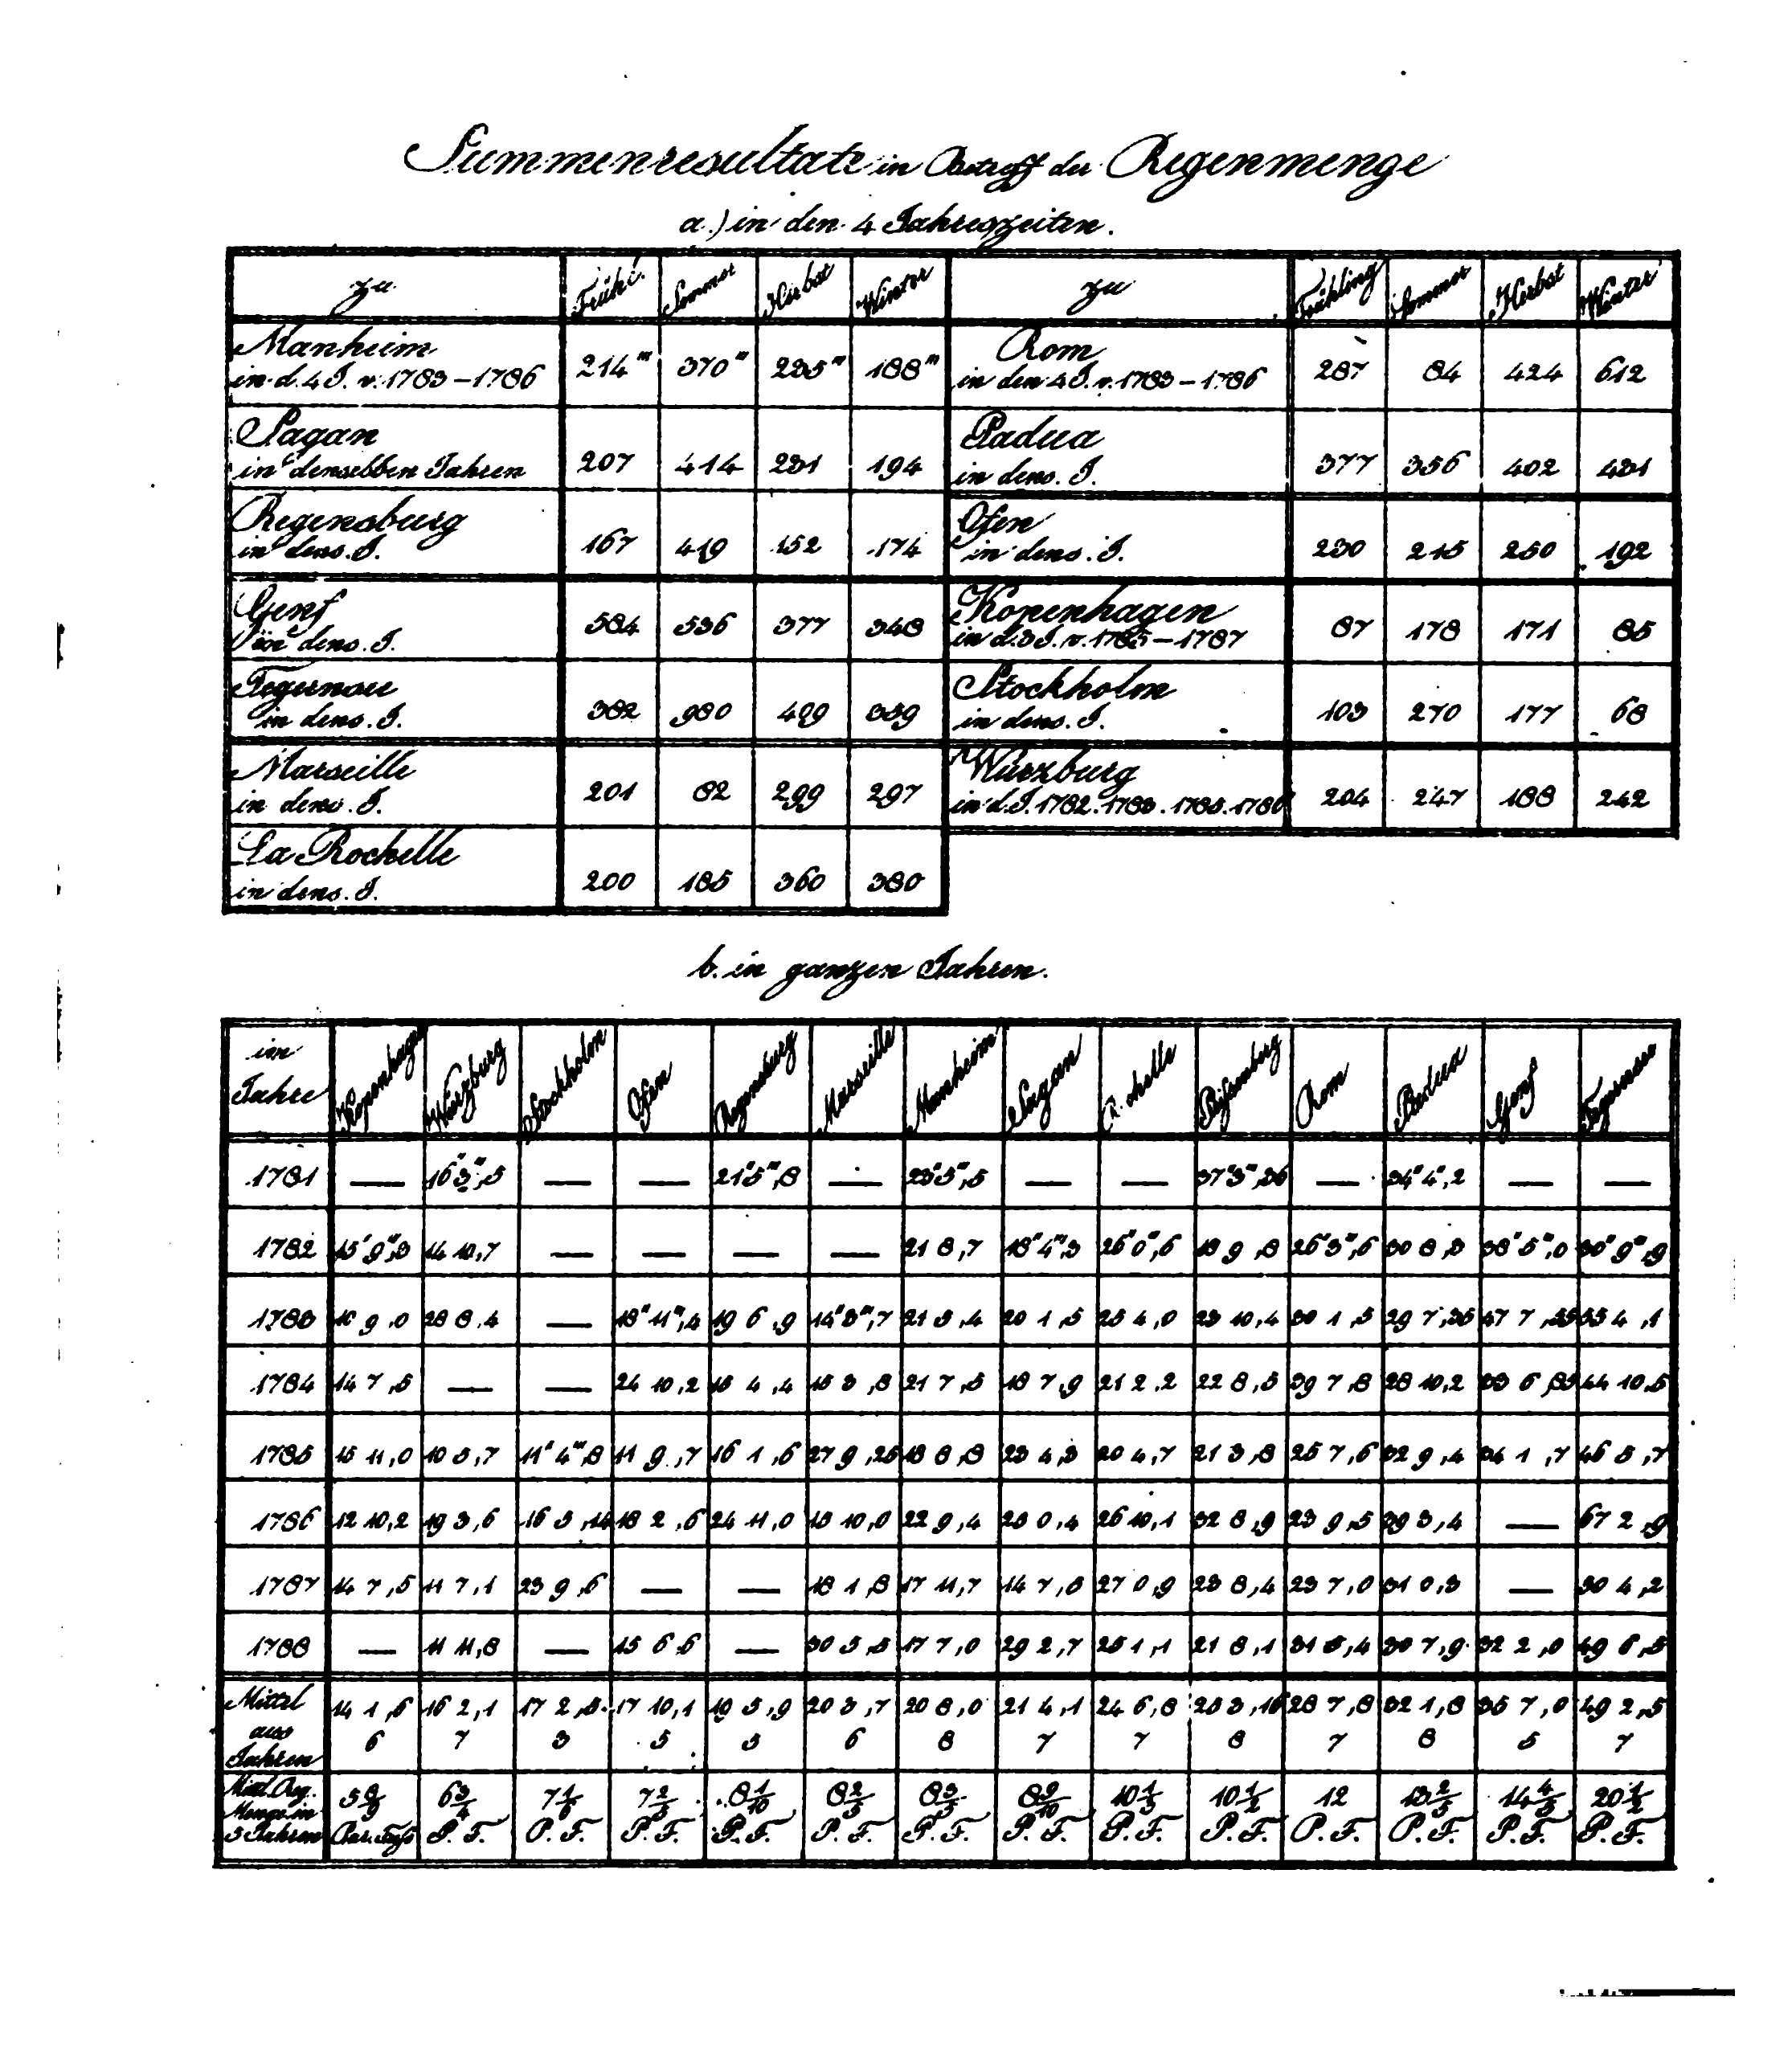 Summenresultate in Betreff der Regenmenge
a.) in den 4 Jahreszeiten.
zu Frühl. Sommer Herbst Winter zu Frühling Sommer Herbst Winter
Manheim Rom
in d. 4 J. v. 1783–1786 214''' 370''' 235''' 188''' in den 4 J. v. 1783–1786 287 84 424 612
Sagan Padua
in denselben Jahren 207 414 231 194 in dens. J. 377 356 402 431
Regensburg Ofen
in dens. J. 167 419 152 174 in dens. J. 230 215 250 192
Genf Kopenhagen
dens. J. 584 536 377 348 in d. 3 J. v. 1785–1787 87 178 171 85
Tegernsee Stockholm
in dens. J. 382 980 499 339 in dens. J. 103 270 177 68
Marseille Würzburg
in dens. J. 201 82 299 297 in d. J. 1782. 1783. 1785. 1786 204 247 188 242
La Rochelle
in dens. J. 200 185 360 380
b. in ganzen Jahren.
im
Jahre Kopenhagen Würzburg Stockholm Ofen Regensburg Marseille Manheim Sagan R. chelle Rom Padua Genf Tegernsee
1781 — 16''3''',5 — — 21''5''',8 — 23''5''',5 — — 37''3''',36 — 34''4''',2 — —
1782 15''9''',3 14 10,7 — — — — 21 8,7 18''4''',3 26''0''',6 18 9,8 26''3''',6 30 8,3 38''5''',0 30''9''',9
1783 10 9,0 28 8,4 — 18''11''',4 19 6,9 14''3''',7 21 3,4 20 1,5 25 4,0 23 10,4 30 1,5 29 7,35 47 7,35 53 4,1
1784 14 7,5 — — 24 10,2 15 4,4 15 3,8 21 7,5 18 7,9 21 2,2 22 8,5 39 7,8 28 10,2 23 6,85 44 10,5
1785 15 11,0 10 5,7 11''4''',8 11 9,7 16 1,6 27 9,25 18 8,8 23 4,3 20 4,7 21 3,8 25 7,6 32 9,4 34 1,7 46 5,7
1786 12 10,2 19 3,6 16 5,14 18 2,6 24 11,0 15 10,0 22 9,4 25 0,4 26 10,1 32 8,9 23 9,5 39 3,4 — 67 2,9
1787 14 7,5 11 7,1 23 9,6 — — 18 1,8 17 11,7 14 7,8 27 0,9 23 8,4 23 7,0 31 0,3 — 30 4,2
1788 — 11 11,8 — 15 6,6 — 30 5,5 17 7,0 29 2,7 25 1,1 21 8,1 31 5,4 30 7,9 32 2,0 49 6,5
Mittel 14 1,6 16 2,1 17 2,5 17 10,1 19 5,9 20 3,7 20 8,0 21 4,1 24 6,8 25 3,16 28 7,8 32 1,8 35 7,0 49 2,5
aus
Jahren 6 7 3 5 5 6 8 7 7 8 7 8 5 7
Mittl. Reg. 5 8/9 6 3/4 7 1/6 7 2/5 8 1/10 8 2/5 8 3/5 8 9/10 10 1/5 10 1/2 12 13 2/5 14 4/5 20 1/2
Menge in
5 Jahren Par. Fuß P. F. P. F. P. F. P. F. P. F. P. F. P. F. P. F. P. F. P. F. P. F. P. F. P. F.